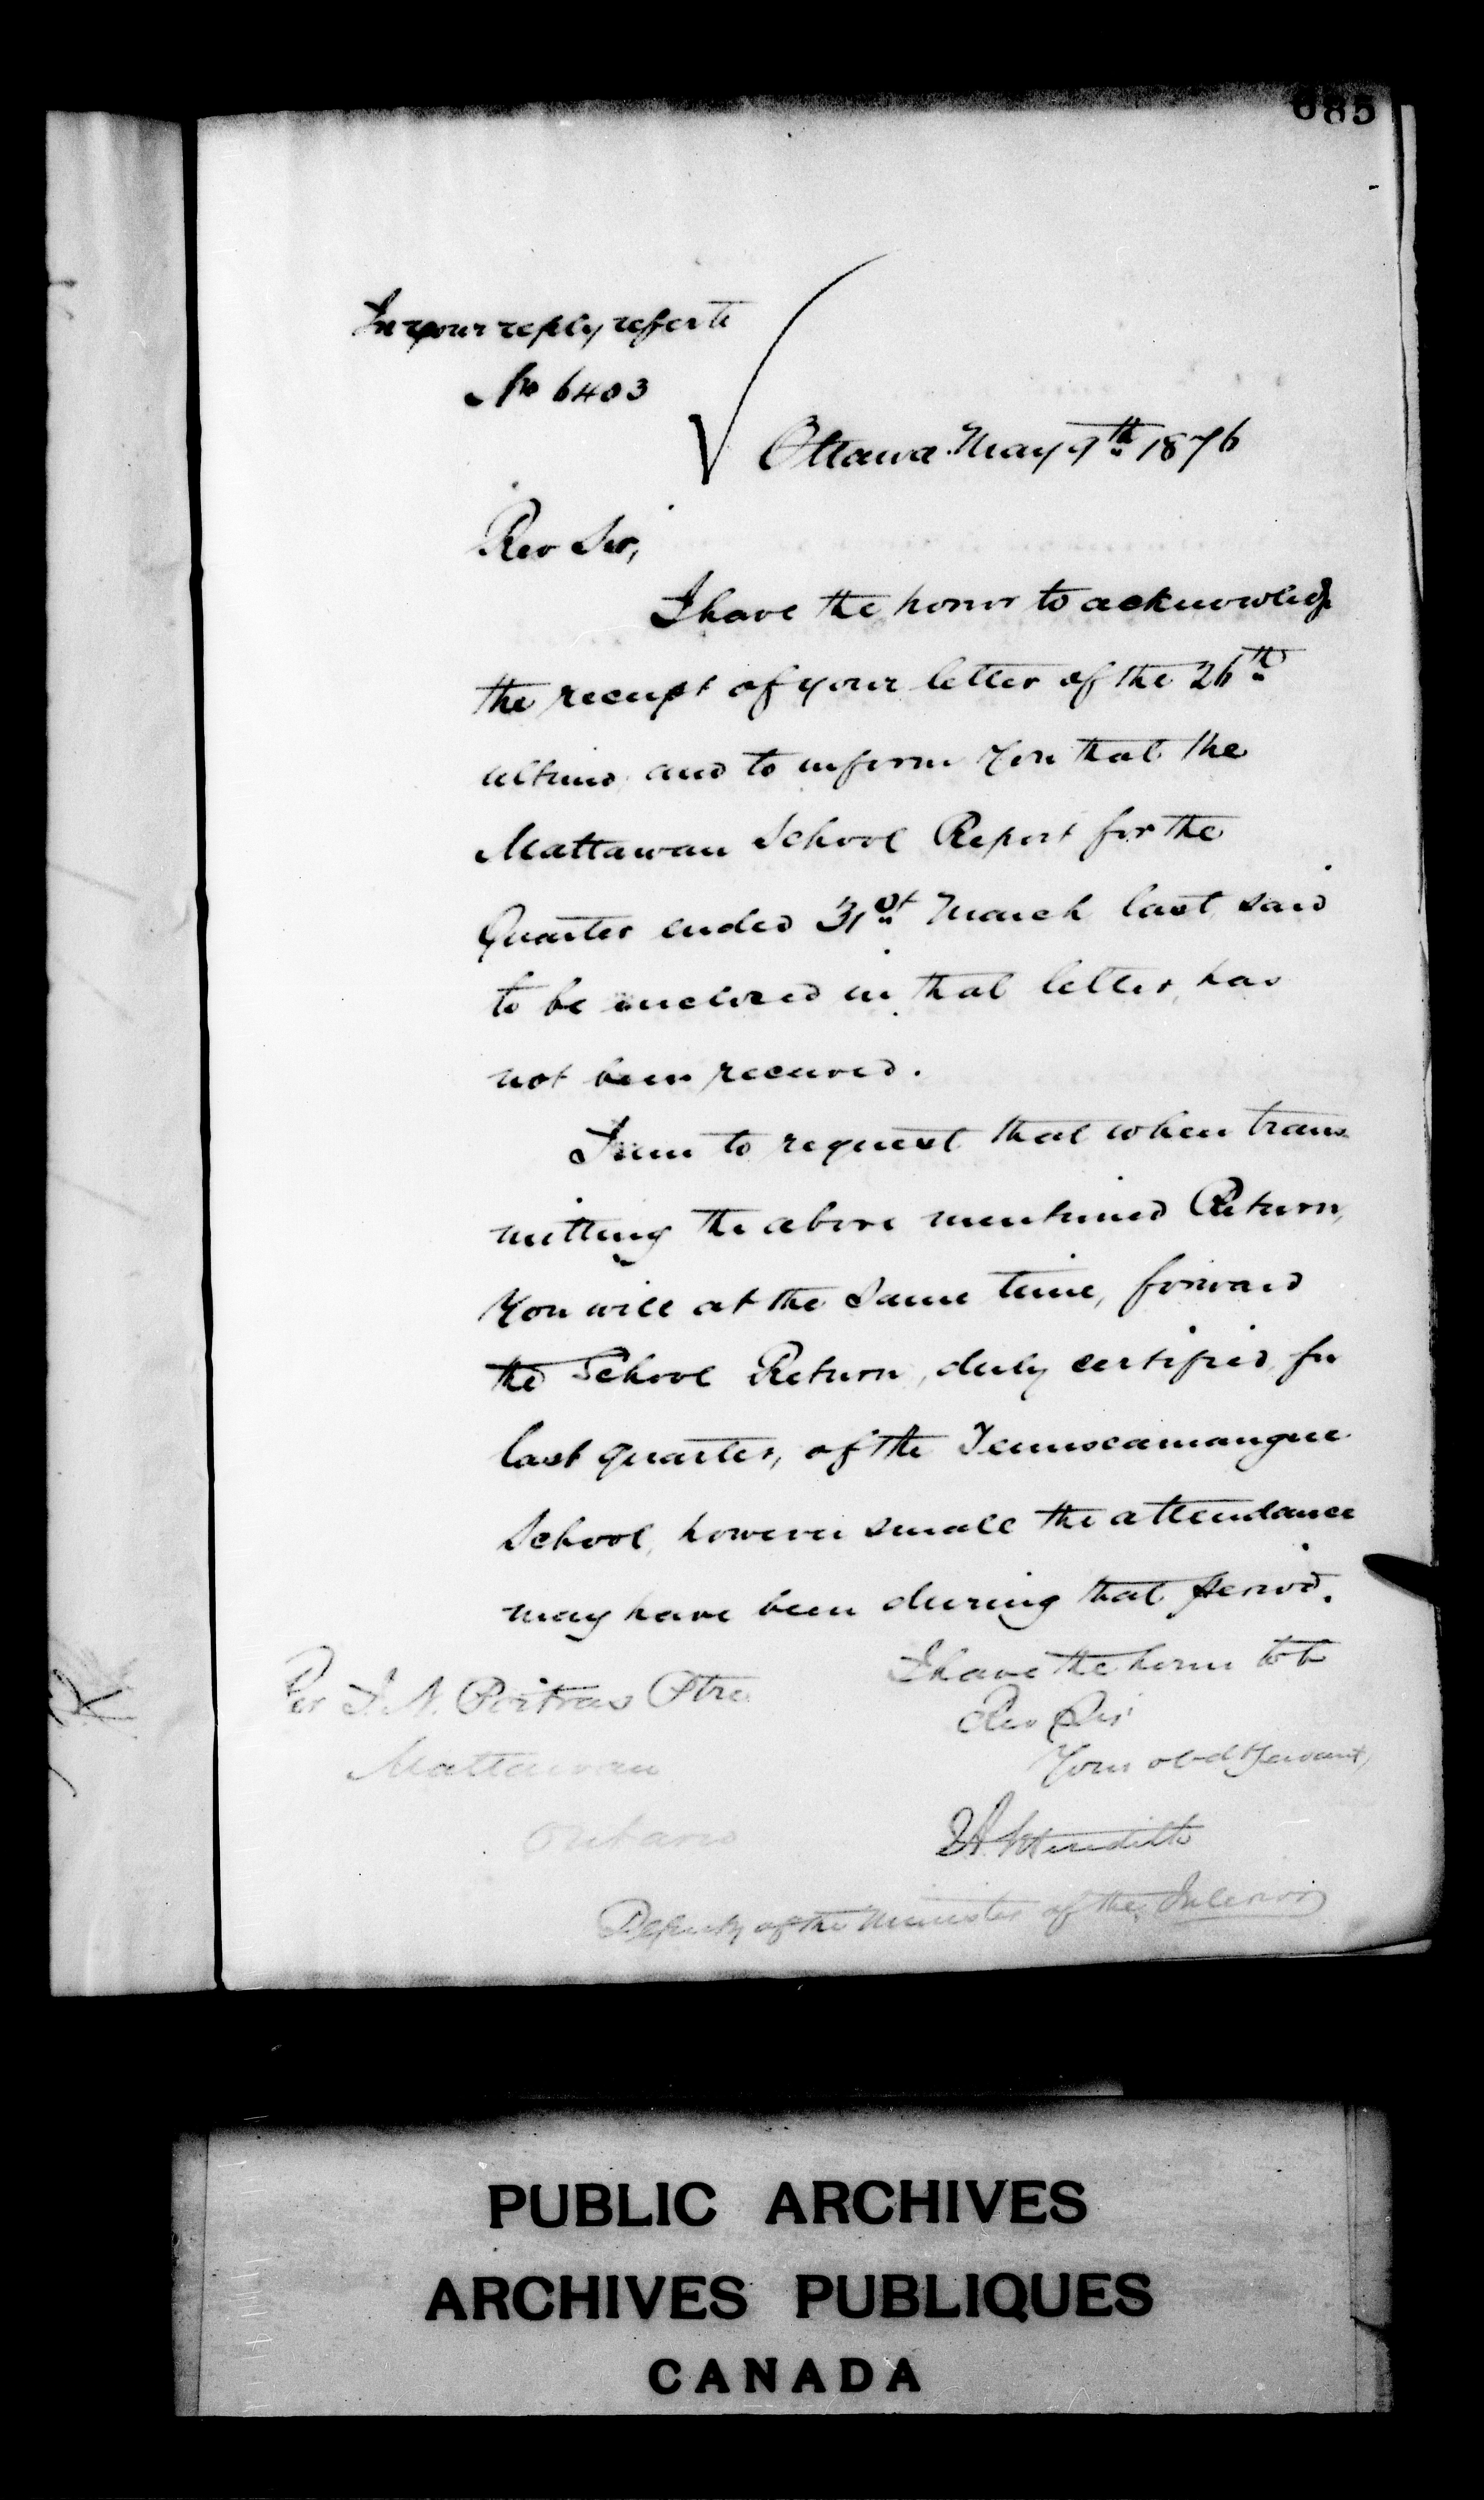 685
In your reply refer to
No 6403
Ottawa May 9th 1876
Rev Sir,
I have the honor to acknowledge
the receipt of your letter of the 26th
ultimo and to inform You that the
Mattawan School Report for the
Quarter ended 31st March last said
to be enclosed in that letter, has
not been received.
I am to request that when trans
mitting the above mentioned Return,
You will at the same time, forward
the School Return, duly certified for
last quarter, of the Temiscamangue
School, however small the attendance
may have been during that period.
I have the honor to be
Rev Sir
Your obdt servant,
Rev J. N. Poitras Ptre
Mattawan
Ontario
Meredith
Deputy of the Minister of the Interior
PUBLIC ARCHIVES
ARCHIVES PUBLIQUES
CANADA